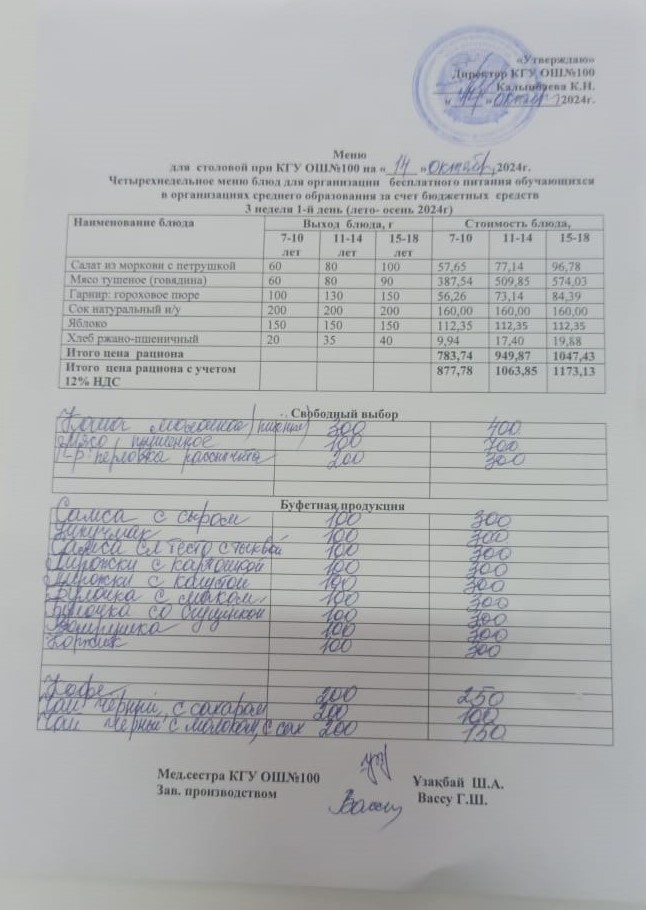 «Утверждаю»
Директор КГУ ОШ№100
Калымбаева К.Н.
« 14 » октябрь 2024г.
Меню
для столовой при КГУ ОШ№100 на « 14 » октябрь 2024г.
Четырехнедельное меню блюд для организации бесплатного питания обучающихся
в организациях среднего образования за счет бюджетных средств
3 неделя 1-й день (лето- осень 2024г)
Наименование блюда Выход блюда, г Стоимость блюда,
7-10 лет 11-14 лет 15-18 лет 7-10 11-14 15-18
Салат из моркови с петрушкой 60 80 100 57,65 77,14 96,78
Мясо тушеное (говядина) 60 80 90 387,54 509,85 574,03
Гарнир: гороховое пюре 100 130 150 56,26 73,14 84,39
Сок натуральный н/у 200 200 200 160,00 160,00 160,00
Яблоко 150 150 150 112,35 112,35 112,35
Хлеб ржано-пшеничный 20 35 40 9,94 17,40 19,88
Итого цена рациона 783,74 949,87 1047,43
Итого цена рациона с учетом
12% НДС 877,78 1063,85 1173,13
Свободный выбор
Каша молочная 300 400
Мясо тушенное 100 700
Гр: перловка рассыпчата 200 300
Буфетная продукция
Самса с сыром 100 300
100 300
Самса сл тесто с тыквой 100 300
Пирожки с картошкой 100 300
Пирожки с капустой 100 300
Булочка с маком 100 300
Булочка со сгущенкой 100 300
Ватрушка 100 300
Коржик 100 300
Кофе 200 250
Чай черный, с сахаром 200 100
Чай черный с молоком, с сах 200 150
Мед.сестра КГУ ОШ№100 Ұзақбай Ш.А.
Зав. производством Вассу Вассу Г.Ш.